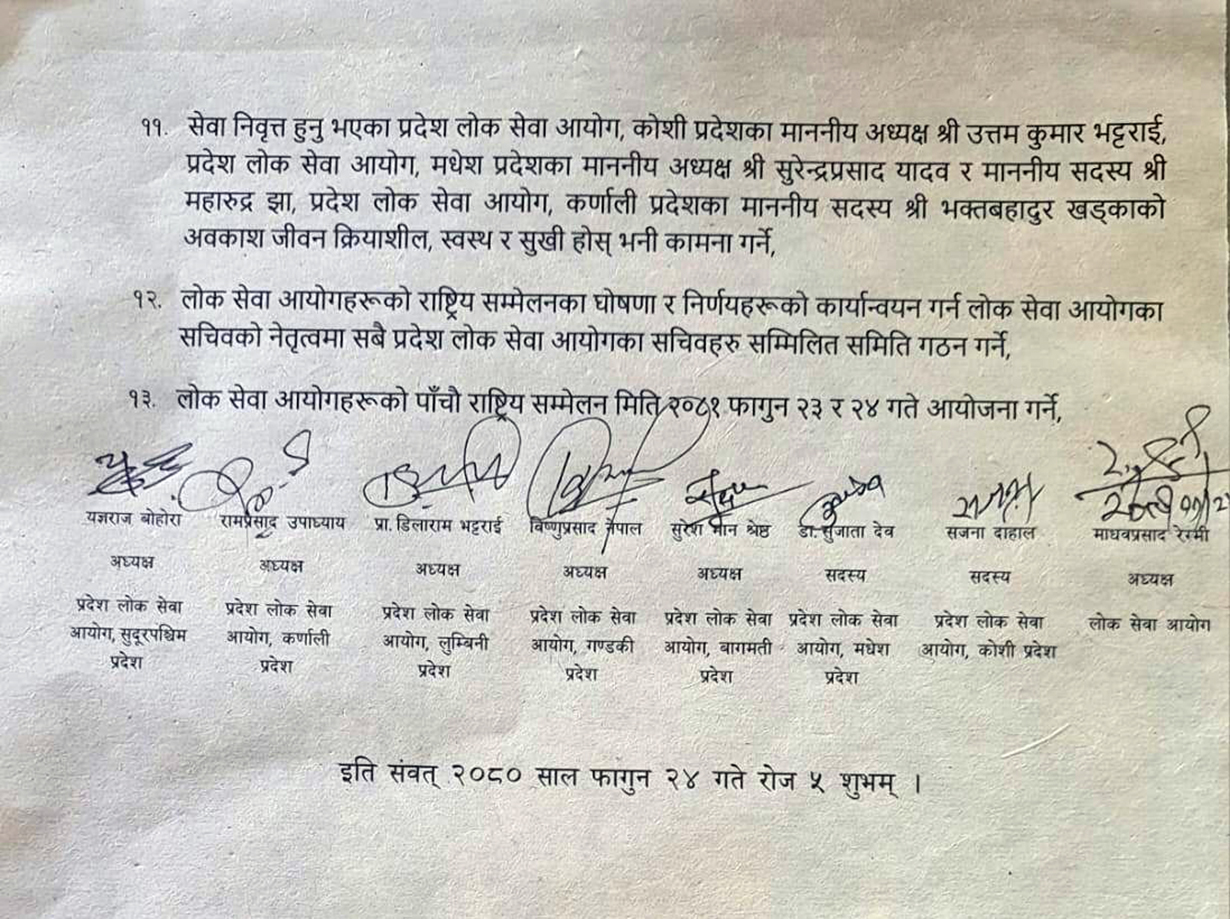 ११. सेवा निवृत्त हुनु भएका प्रदेश लोक सेवा आयोग, कोशी प्रदेशका माननीय अध्यक्ष श्री उत्तम कुमार भट्टराई,
प्रदेश लोक सेवा आयोग, मधेश प्रदेशका माननीय अध्यक्ष श्री सुरेन्द्रप्रसाद यादव र माननीय सदस्य श्री
महारुद्र झा, प्रदेश लोक सेवा आयोग, कर्णाली प्रदेशका माननीय सदस्य श्री भक्तबहादुर खड्काको
अवकाश जीवन क्रियाशील, स्वस्थ र सुखी होस् भनी कामना गर्ने,
१२. लोक सेवा आयोगहरूको राष्ट्रिय सम्मेलनका घोषणा र निर्णयहरूको कार्यान्वयन गर्न लोक सेवा आयोगका
सचिवको नेतृत्वमा सबै प्रदेश लोक सेवा आयोगका सचिवहरु सम्मिलित समिति गठन गर्ने,
१३. लोक सेवा आयोगहरूको पाँचौ राष्ट्रिय सम्मेलन मिति २०८१ फागुन २३ र २४ गते आयोजना गर्ने,
यज्ञराज बोहोरा रामप्रसाद उपाध्याय प्रा. डिलाराम भट्टराई विष्णुप्रसाद नेपाल सुरेश मान श्रेष्ठ डा. सुजाता देव सजना दाहाल माधवप्रसाद रेग्मी
अध्यक्ष अध्यक्ष अध्यक्ष अध्यक्ष अध्यक्ष सदस्य सदस्य अध्यक्ष
प्रदेश लोक सेवा प्रदेश लोक सेवा प्रदेश लोक सेवा प्रदेश लोक सेवा प्रदेश लोक सेवा प्रदेश लोक सेवा प्रदेश लोक सेवा लोक सेवा आयोग
आयोग, सुदूरपश्चिम आयोग, कर्णाली आयोग, लुम्बिनी आयोग, गण्डकी आयोग, बागमती आयोग, मधेश आयोग, कोशी प्रदेश
प्रदेश प्रदेश प्रदेश प्रदेश प्रदेश प्रदेश
इति संवत् २०८० साल फागुन २४ गते रोज ५ शुभम् ।